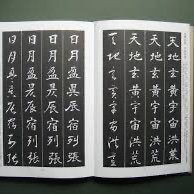 天地玄黃宇宙洪荒
天地玄黃宇宙洪荒
天地玄黃宇宙洪荒
日月盈昃辰宿列張
日月盈昃辰宿列張
日月盈昃辰宿列張
日月盈昃辰宿列張